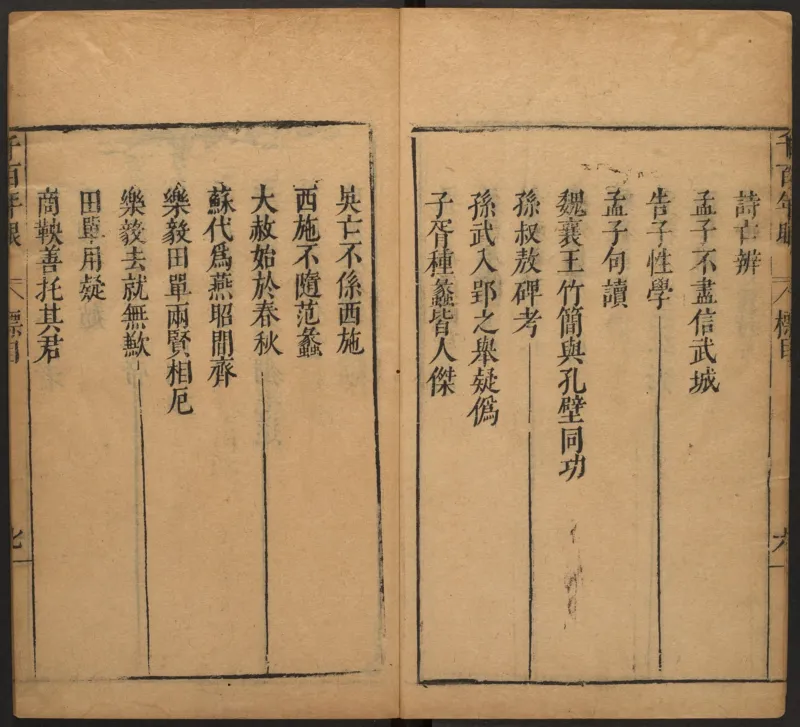 千百年眼
標目
六
詩亡辨
孟子不盡信武城
告子性學
孟子句讀
魏襄王竹簡與孔壁同功
孫叔敖碑考
孫武入郢之舉疑僞
子胥種蠡皆人傑
吳亡不係西施
西施不隨范蠡
大赦始於春秋
蘇代爲燕昭間齊
樂毅田單兩賢相厄
樂毅去就無歉
田單用疑
商鞅善托其君
千百年眼
標目
七